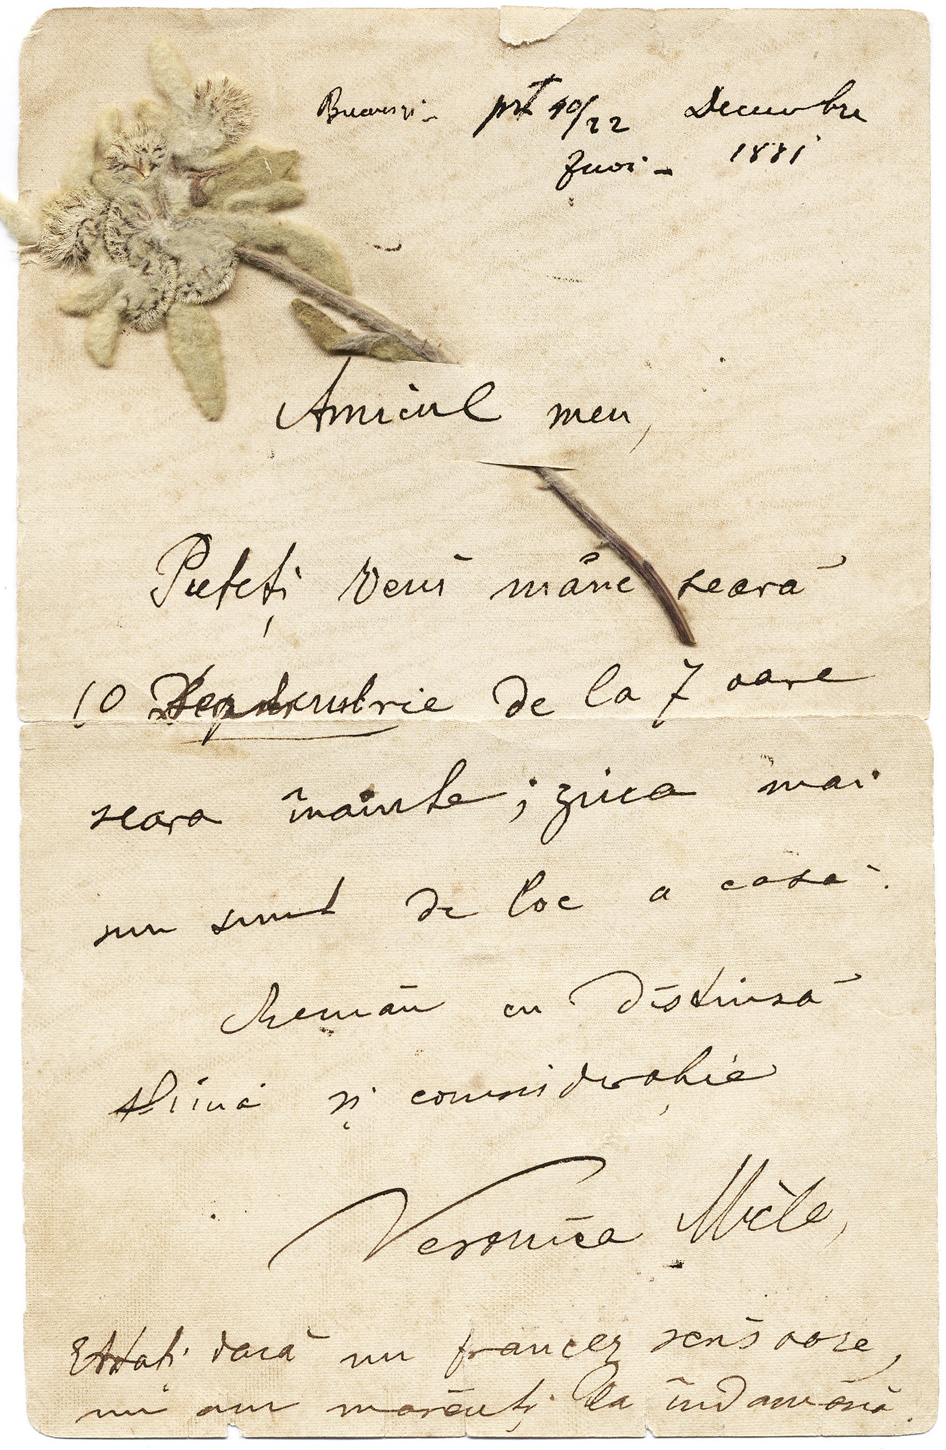 București - 10/22 Decembre
Juoi - 1881
Amicul meu,
Puteți veni mâne seară
10 de la 7 oare
seara înainte; ziua mai
nu sunt de loc a casă.
Remân cu distinsă
stimă și considerație
Veronica Micle,
dacă nu francez scrisoare,
nu am mărênți la îndamână.